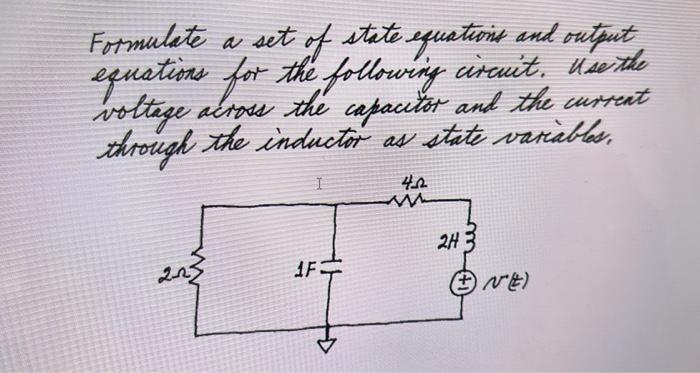 Formulate a set of state equations and output
equations for the following circuit. Use the
voltage across the capacitor and the current
through the inductor as state variables.
4Ω
2H
2Ω
1F
+
v(t)